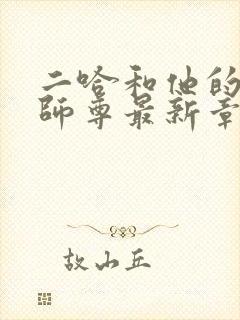 二哈和他的
师尊最新章
故山丘